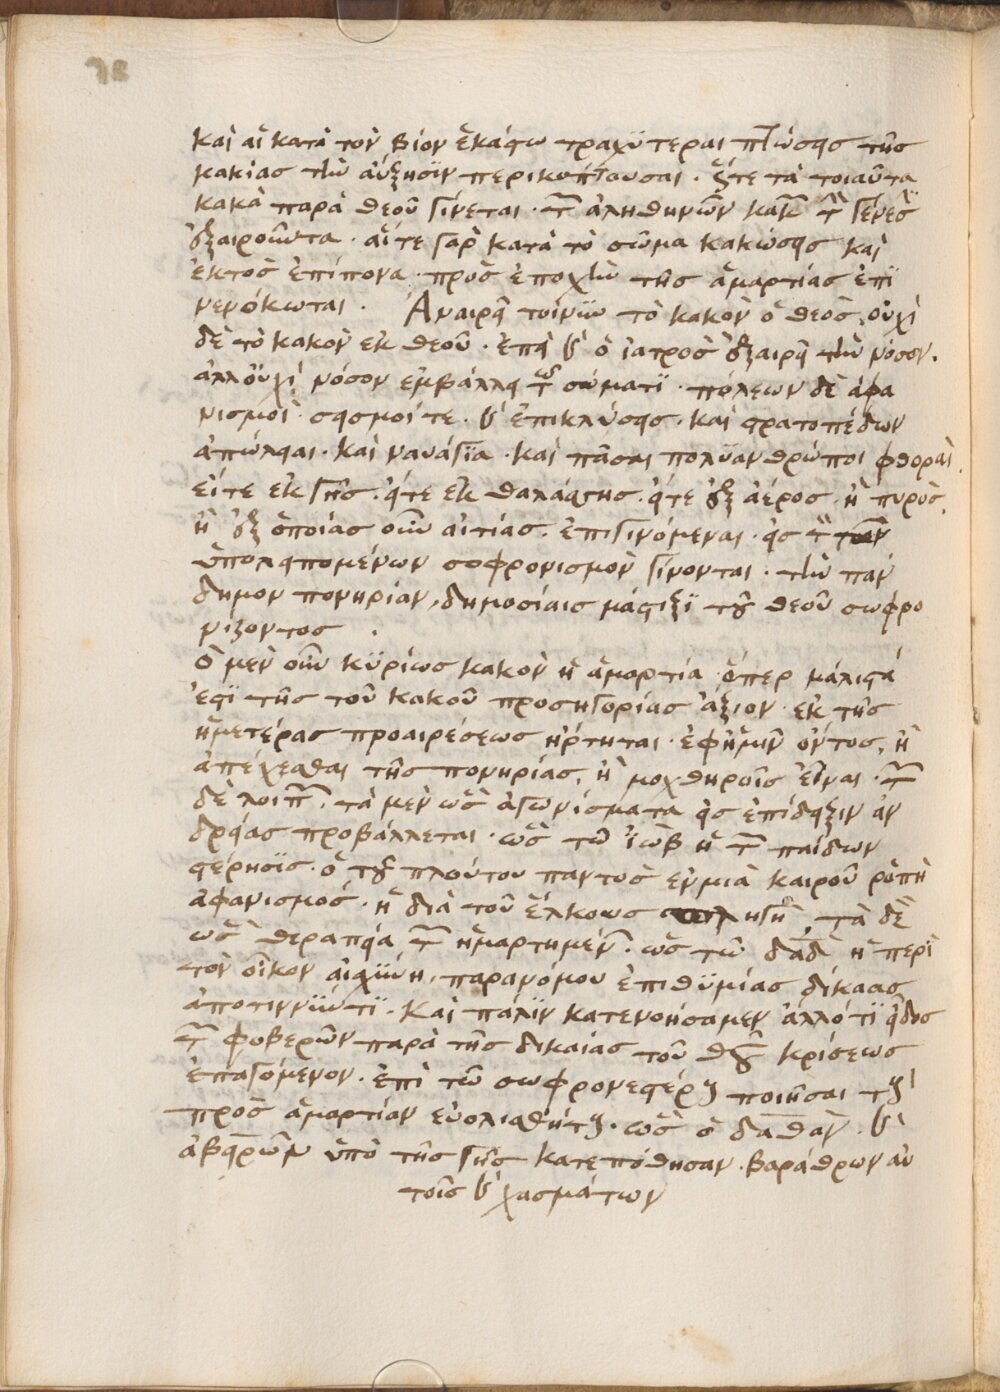 καὶ αἱ κατὰ τὸν βίον ἑκάστω τραχύτεραι πτώσεις τῆς
κακίας τὴν αὔξησϊν περικόπτουσαι. ὥστε τὰ τοιαῦτα
κακὰ παρὰ θεοῦ γίνεται. τῶν ἀληθηνῶν κακῶν τὴν γένεσϊν
ἐξαιροῦντα. αἵτε γὰρ κατὰ τὸ σῶμα κακώσεις καὶ
ἐκτὸς ἐπίπονα. πρὸς ἐποχὴν τῆς ἁμαρτίας ἐπϊ
νενόκωται. Αναιρεῖ τοίνϋν τὸ κακὸν ὁ θεὸς, οὐχὶ
δὲ τὸ κακὸν ἐκ θεοῦ. ἐπεὶ καὶ ὁ ἰατρὸς ἐξαιρεῖ τὴν νόσον.
ἀλλ οὐχὶ νόσον ἐμβάλλει τῶ σώματϊ. πόλεων δὲ ἀφα
νισμοί. σεισμοίτε. καὶ ἐπικλύσεις. καὶ στρατοπέδων
ἀπώλειαι. καὶ ναυάγϊα. καὶ πᾶσαι πολϋανθρώποι φθοραὶ.
εἴτε ἐκ γῆς. εἴτε ἐκ θαλάσσης. εἴτε ἐξ ἀέρος. ἢ πυρὸς.
ἢ ἐξ ὁποίας οὖν αἰτίας. ἐπιγινόμεναι. εἰς τὸν τῶν
ὑπολειπομένων σοφρονισμὸν γίνονται. τὴν παν
δημον πονηρίαν, δημοσίαις μάστιξϊ τοῦ θεοῦ σωφρο
νίζοντος.
Ὁ μὲν οὖν κϋρίως κακὸν ἡ ἁμαρτία. ὅπερ μάλιστά
ἐστϊ τῆς τοῦ κακοῦ προσηγορίας ἄξιον. ἐκ τῆς
ἡμετέρας προαιρέσεως ἤρτηται. ἐφἡμῖν ὄντος, ἢ
ἀπέχεσθαι τῆς πονηρίας, ἢ μοχθηροῖς εἶναι. τῶν
δὲ λοιπῶν. τὰ μὲν ὡς ἀγωνίσματα εἰς ἐπίδειξιν ἀν
δρείας προβάλλεται. ὡς τῶ ἰὼβ ἡ τῶν παίδων
στέρησϊς. ὁ τοῦ πλούτου παντὸς ἐν μιᾶ καιροῦ ῥοπῆ
ἀφανισμός. ἡ διὰ τοῦ ἕλκους πληγή, τὰ δὲ
ὡς θεραπεία τῶν ἡμαρτημένων. ὡς τῶ δᾱδ ἡ περὶ
τὸν οἶκον αἰσχϋνη, παρανόμου ἐπιθϋμίας δίκαας
ἀποτιννϋντϊ. Καὶ παλϊν κατενοήσαμεν ἄλλότϊ εἶδος
τῶν φοβερῶν παρὰ τῆς δικαίας τοῦ θῦ κρίσεως
ἐπαγόμενον. ἐπὶ τῶ σωφρονεστέρους ποιῆσαι τοὺς
πρὸς ἁμαρτίαν εὐολισθήτους. ὡς ὁ δαθὰν. καὶ
ἀβειρῶν ὑπὸ τῆς γῆς κατεπόθησαν. βαράθρων αὐ
τοῖς καὶ χασμάτων